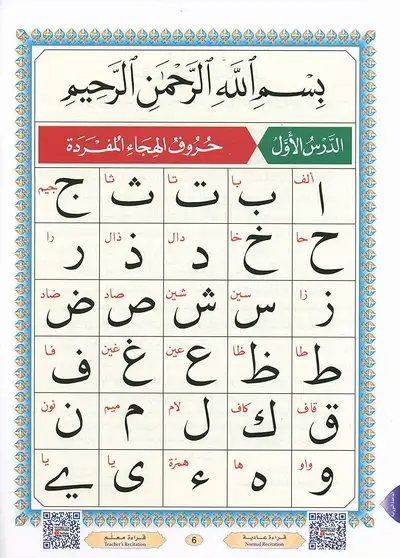 بِسْمِ ٱللَّهِ ٱلرَّحْمَٰنِ ٱلرَّحِيمِ
الدَّرْسُ الأَوَّلُ حُرُوفُ الهِجَاءِ المُفْرَدَة
ألف با تا ثا جيم
ا ب ت ث ج
حا خا دال ذال را
ح خ د ذ ر
زا سين شين صاد ضاد
ز س ش ص ض
طا ظا عين غين فا
ط ظ ع غ ف
قاف كاف لام ميم نون
ق ك ل م ن
واو ها همزة يا يا
و ه ء ى ے
قراءة عادية
Normal Recitation
6
قراءة معلم
Teacher's Recitation